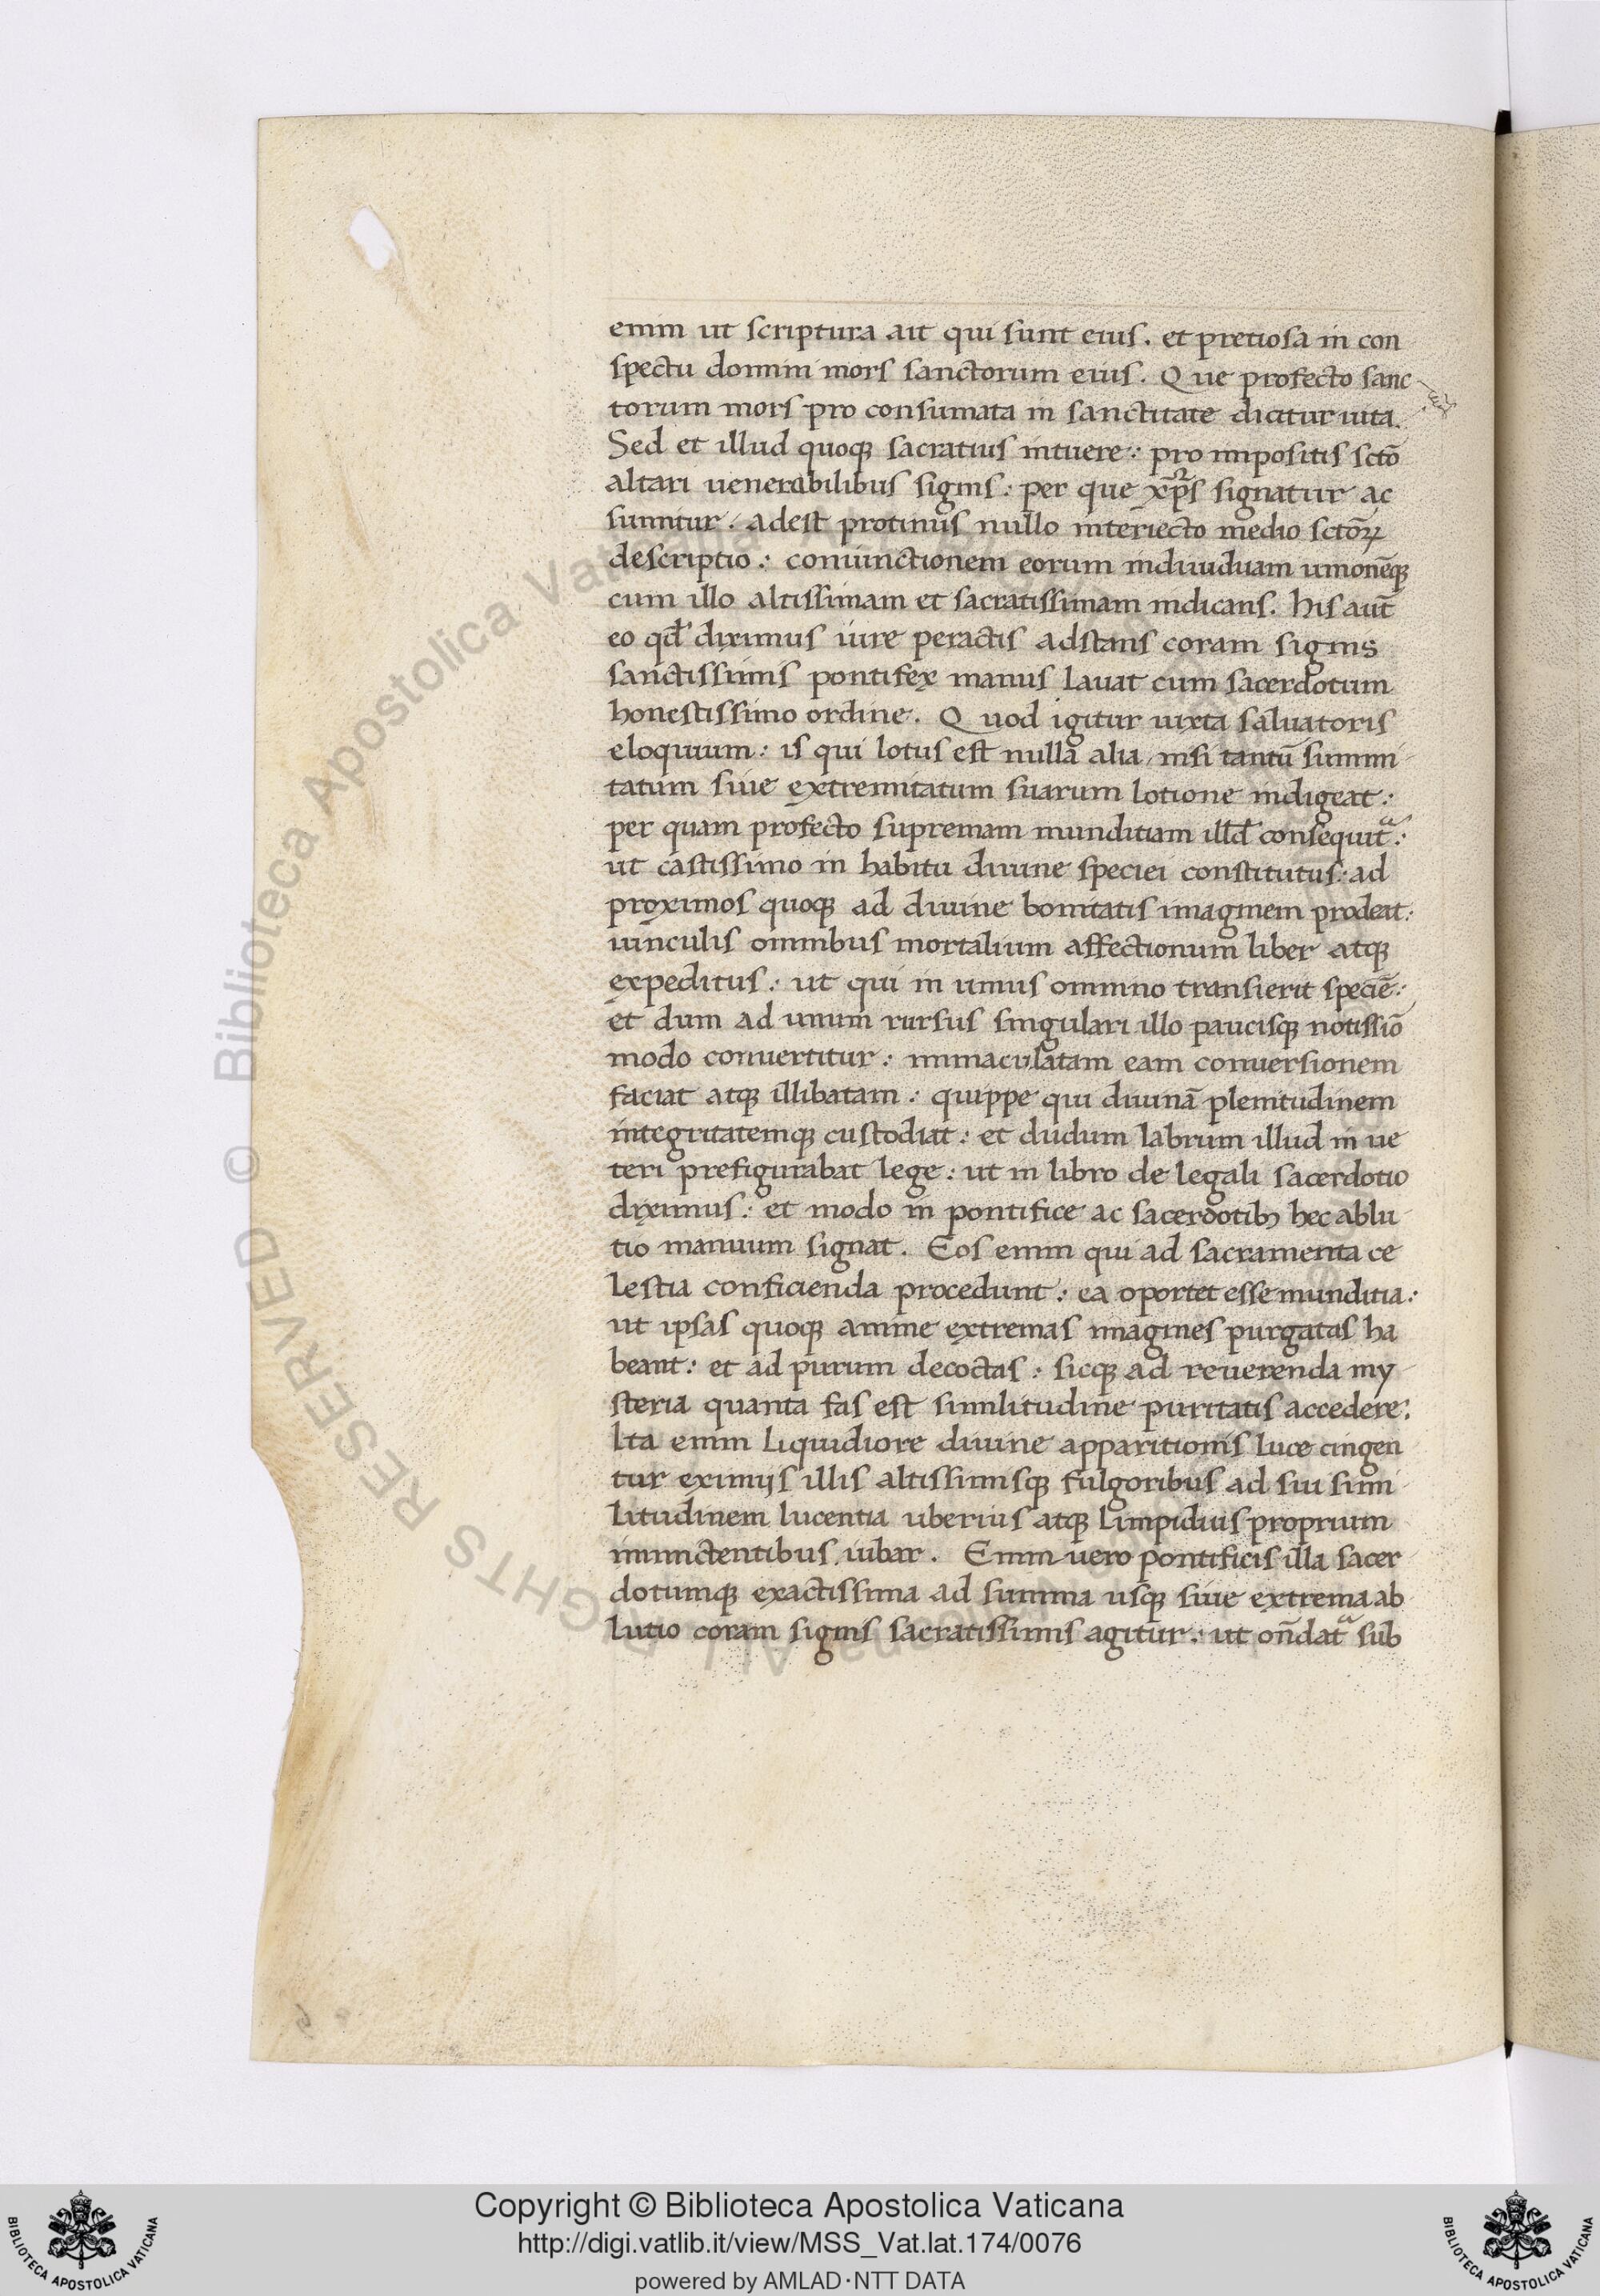 enim ut scriptura ait qui sunt eius. et pretiosa in con
spectu domini mors sanctorum eius. Que profecto sanc
torum mors pro consumata in sanctitate dicitur uita.
Sed et illud quoqꝫ sacratius intuere: pro impositis sctō
altari uenerabilibus signis: per que xp̄s signatur ac
sumitur. adest protinus nullo interiecto medio sctōꝝ
descriptio: coniunctionem eorum indiuiduam unionēqꝫ
cum illo altissimam et sacratissimam indicans. his aut̄
eo qd̄ diximus iure peractis adstans coram signis
sanctissimis pontifex manus lauat cum sacerdotum
honestissimo ordine. Quod igitur iuxta saluatoris
eloquium: is qui lotus est nulla alia nisi tantū summi
tatum siue extremitatum suarum lotione indigeat:
per quam profecto supremam munditiam illd̄ consequitᵃ:
ut castissimo in habitu diuine speciei constitutus: ad
proximos quoqꝫ ad diuine bonitatis imaginem prodeat:
uinculis omnibus mortalium affectionum liber atqꝫ
expeditus: ut qui in unius omnino transierit speciē:
et dum ad unum rursus singulari illo paucisqꝫ notissiō
modo conuertitur: immaculatam eam conuersionem
faciat atqꝫ illibatam: quippe qui diuinā plenitudinem
integritatemqꝫ custodiat: et dudum labrum illud in ue
teri prefigurabat lege: ut in libro de legali sacerdotio
diximus: et modo in pontifice ac sacerdotibꝫ hec ablu
tio manuum signat. Eos enim qui ad sacramenta ce
lestia conficienda procedunt: ea oportet esse munditia:
ut ipsas quoqꝫ anime extremas imagines purgatas ha
beant: et ad purum decoctas: sicqꝫ ad reuerenda my
steria quanta fas est similitudine puritatis accedere.
Ita enim liquidiore diuine apparitionis luce cingen
tur eximijs illis altissimisqꝫ fulgoribus ad sui simi
litudinem lucentia uberius atqꝫ limpidius proprium
inmictentibus iubar. Enim uero pontificis illa sacer
dotumqꝫ exactissima ad summa usqꝫ siue extrema ab
lutio coram signis sacratissimis agitur: ut on̄datᵃ sub
© Biblioteca Apostolica Vaticana
RIGHTS RESERVED
Copyright © Biblioteca Apostolica Vaticana
http://digi.vatlib.it/view/MSS_Vat.lat.174/0076
powered by AMLAD·NTT DATA
BIBLIOTECA APOSTOLICA VATICANA
BIBLIOTECA APOSTOLICA VATICANA